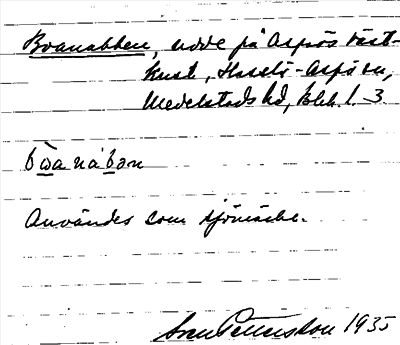 Boanabben, udde på Aspös väst-
kust, Hasslö-Aspö sn,
Medelstads hd, Blek. l. 3
Användes som sjömärke.
1935